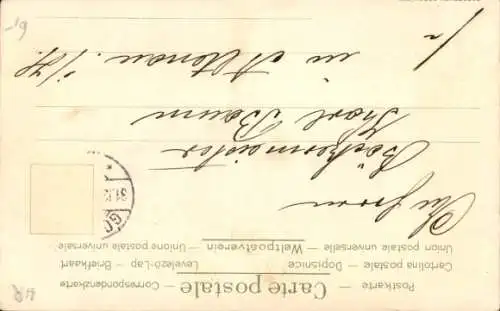 Carte postale
Postkarte — Correspondenzkarte
Cartolina postale — Dopisnice — Levelező-Lap — Briefkaart
Union postale universelle — Weltpostverein — Unione postale universale
An Herrn
Bäckermeister
Karl Baum
in Altenau i/H.